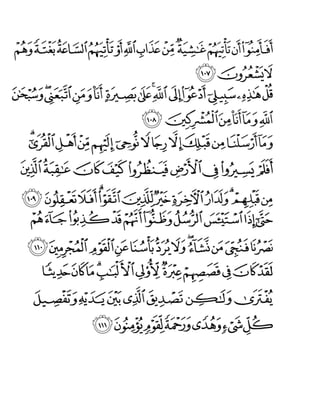 أَفَأَمِنُوٓا۟ أَن تَأْتِيَهُمْ غَٰشِيَةٌ مِّنْ عَذَابِ ٱللَّهِ أَوْ تَأْتِيَهُمُ ٱلسَّاعَةُ بَغْتَةً وَهُمْ
لَا يَشْعُرُونَ ١٠٧
قُلْ هَٰذِهِۦ سَبِيلِىٓ أَدْعُوٓا۟ إِلَى ٱللَّهِ عَلَىٰ بَصِيرَةٍ أَنَا۠ وَمَنِ ٱتَّبَعَنِى وَسُبْحَٰنَ
ٱللَّهِ وَمَآ أَنَا۠ مِنَ ٱلْمُشْرِكِينَ ١٠٨
وَمَآ أَرْسَلْنَا مِن قَبْلِكَ إِلَّا رِجَالًا نُّوحِىٓ إِلَيْهِم مِّنْ أَهْلِ ٱلْقُرَىٰٓ
أَفَلَمْ يَسِيرُوا۟ فِى ٱلْأَرْضِ فَيَنظُرُوا۟ كَيْفَ كَانَ عَٰقِبَةُ ٱلَّذِينَ
مِن قَبْلِهِمْ وَلَدَارُ ٱلْءَاخِرَةِ خَيْرٌ لِّلَّذِينَ ٱتَّقَوْا۟ أَفَلَا تَعْقِلُونَ ١٠٩
حَتَّىٰٓ إِذَا ٱسْتَيْـَٔسَ ٱلرُّسُلُ وَظَنُّوٓا۟ أَنَّهُمْ قَدْ كُذِبُوا۟ جَآءَهُمْ
نَصْرُنَا فَنُجِّىَ مَن نَّشَآءُ وَلَا يُرَدُّ بَأْسُنَا عَنِ ٱلْقَوْمِ ٱلْمُجْرِمِينَ ١١٠
لَقَدْ كَانَ فِى قَصَصِهِمْ عِبْرَةٌ لِّأُو۟لِى ٱلْأَلْبَٰبِ مَا كَانَ حَدِيثًا
يُفْتَرَىٰ وَلَٰكِن تَصْدِيقَ ٱلَّذِى بَيْنَ يَدَيْهِ وَتَفْصِيلَ
كُلِّ شَىْءٍ وَهُدًى وَرَحْمَةً لِّقَوْمٍ يُؤْمِنُونَ ١١١